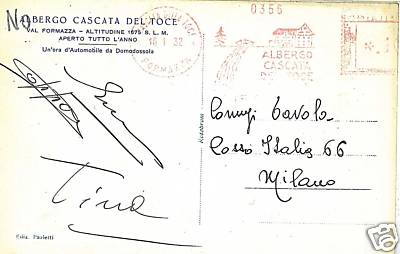 No
ALBERGO CASCATA DEL TOCE
VAL FORMAZZA - ALTITUDINE 1675 S. L. M.
APERTO TUTTO L'ANNO
Un'ora d'Automobile da Domodossola
18 1 32
FORMAZZA
0356
ALBERGO
CASCATA
DEL TOCE
Coniugi Tavola
Corso Italia 66
Milano
Tina
Ediz. Paoletti
ebay